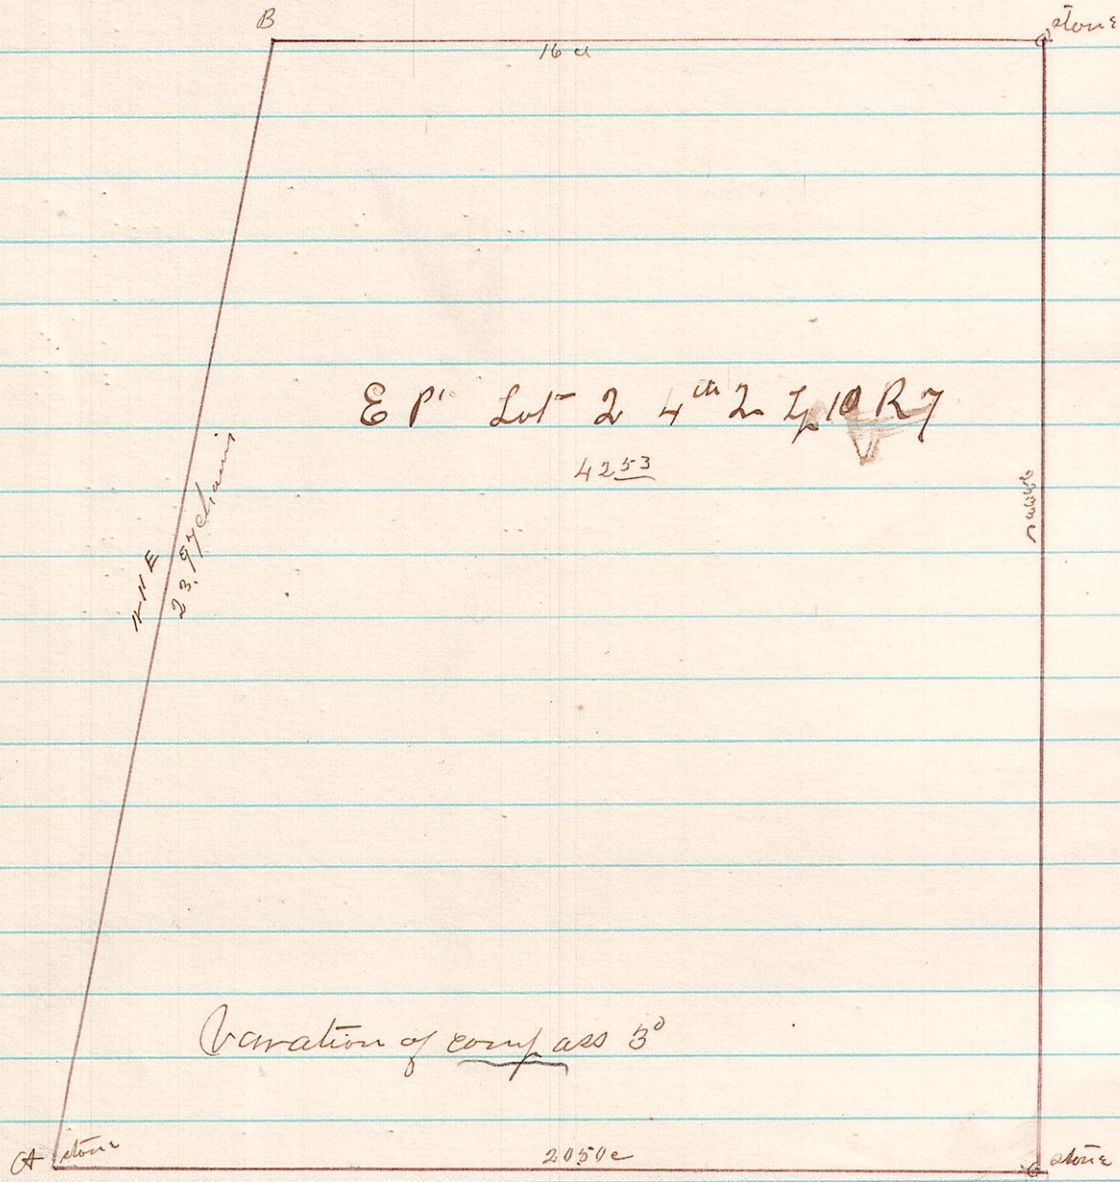 B
stone
16 c
E Pt Lot 2 4th 2 Tp 10 R 7
42 53
N 11 E
23.97 chains
Variation of compass 3°
A stone
2050 c
stone